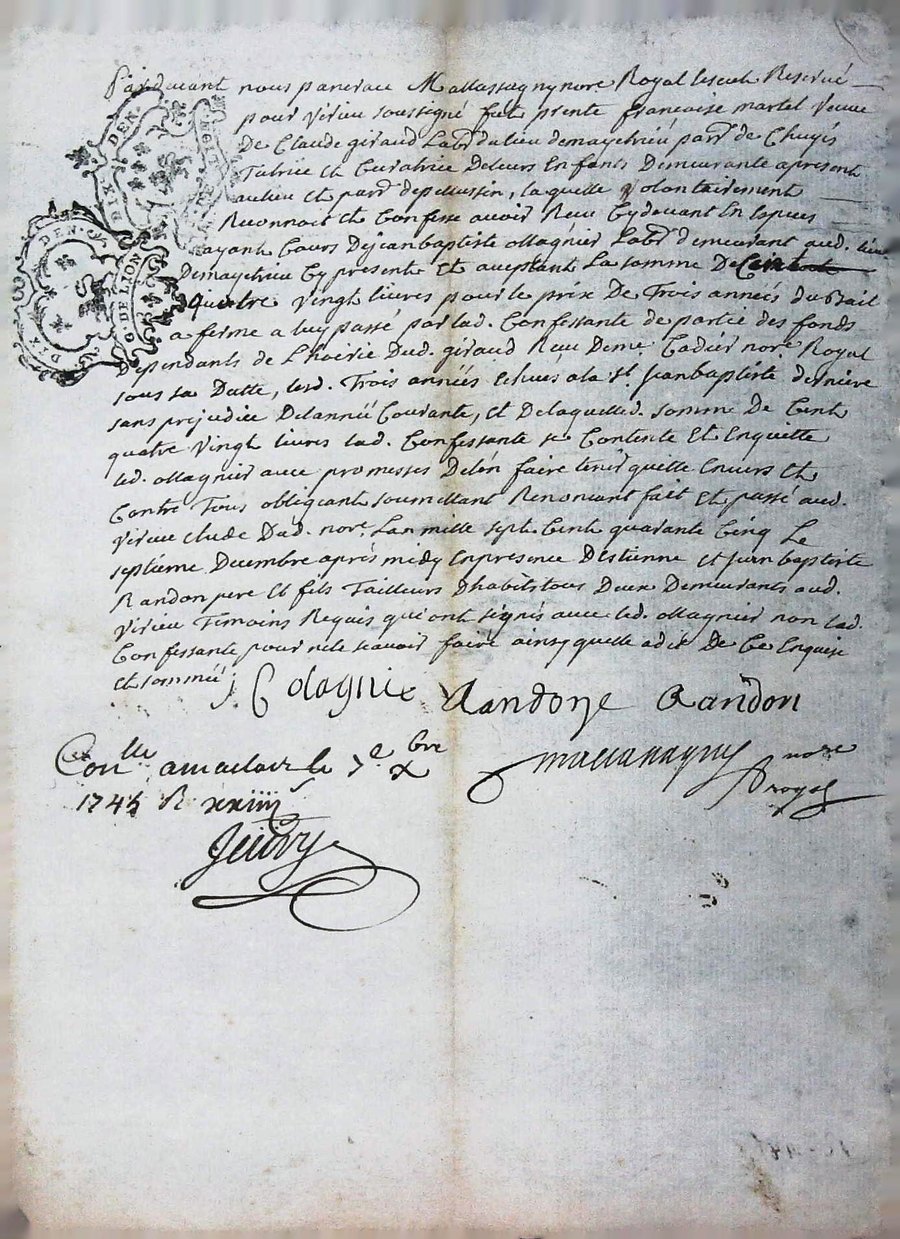 Pardevant nous pancrace Mattassagny nore Royal lescuel Reservé
pour virieu soussigné fut pnte françoise martel veuve
De Claude giraud Labr du lieu demaychieu parr de Chuyës
Tutrice et Curatrice De leurs Enfants Demeurante apresent
aulieu et parr depelussin, laquelle volontairement
Reconnoit et Confesse avoir Reçu Cy devant En especes
ayant Cours Dejeanbaptiste Magnier Labr demeurant aud. lieu
Demaychieu Cy presente et aceptant La somme De Cent
quatre vingt livres pour le prix De Trois années du Bail
a ferme a luy passé par lad. Confessante de partie des fonds
Dependants de Lhoirie Dud. giraud Reçu De me Cadier nore Royal
sous sa Datte, lesd. Trois années Echues ala St. Jeanbaptiste derniere
sans prejudice Delannée Courante, et Delaquelled. somme De Cent
quatre vingt livres lad. Confessante se Contente Et Enquitte
led. Magnier avec promesses Delén faire tenir quitte Envers Et
Contre Tous obligeant soumettant Renoncant fait Et passé aud.
virieu Etude Dud. nore. Lan mille sept Cent quarante Cinq Le
septieme Decembre aprés midy Enpresence Destienne et Jean baptiste
Randon pere Et fils Tailleurs Dhabits tous Deux Demeurants aud.
virieu Temoins Requis qui ont signés avec led. Magnier non lad.
Confessante pour nele scavoir faire ainsy quelle adit De Ce Enquise
et sommée
Randon
nore
royal
Conlle amaclas le 7e xbre
1745 R xxiiij s
DIX DEN.
DIX DEN.
G. DE LYON